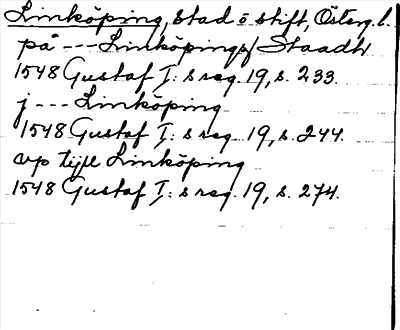 Linköping, stad o stift, Österg. l.
på --- Linköpings Staadh
1548 Gustaf I: s reg. 19, s. 233.
j --- Linköping
1548 Gustaf I: s reg. 19, s. 244.
vp tijll Linköping
1548 Gustaf I: s reg. 19, s. 274.